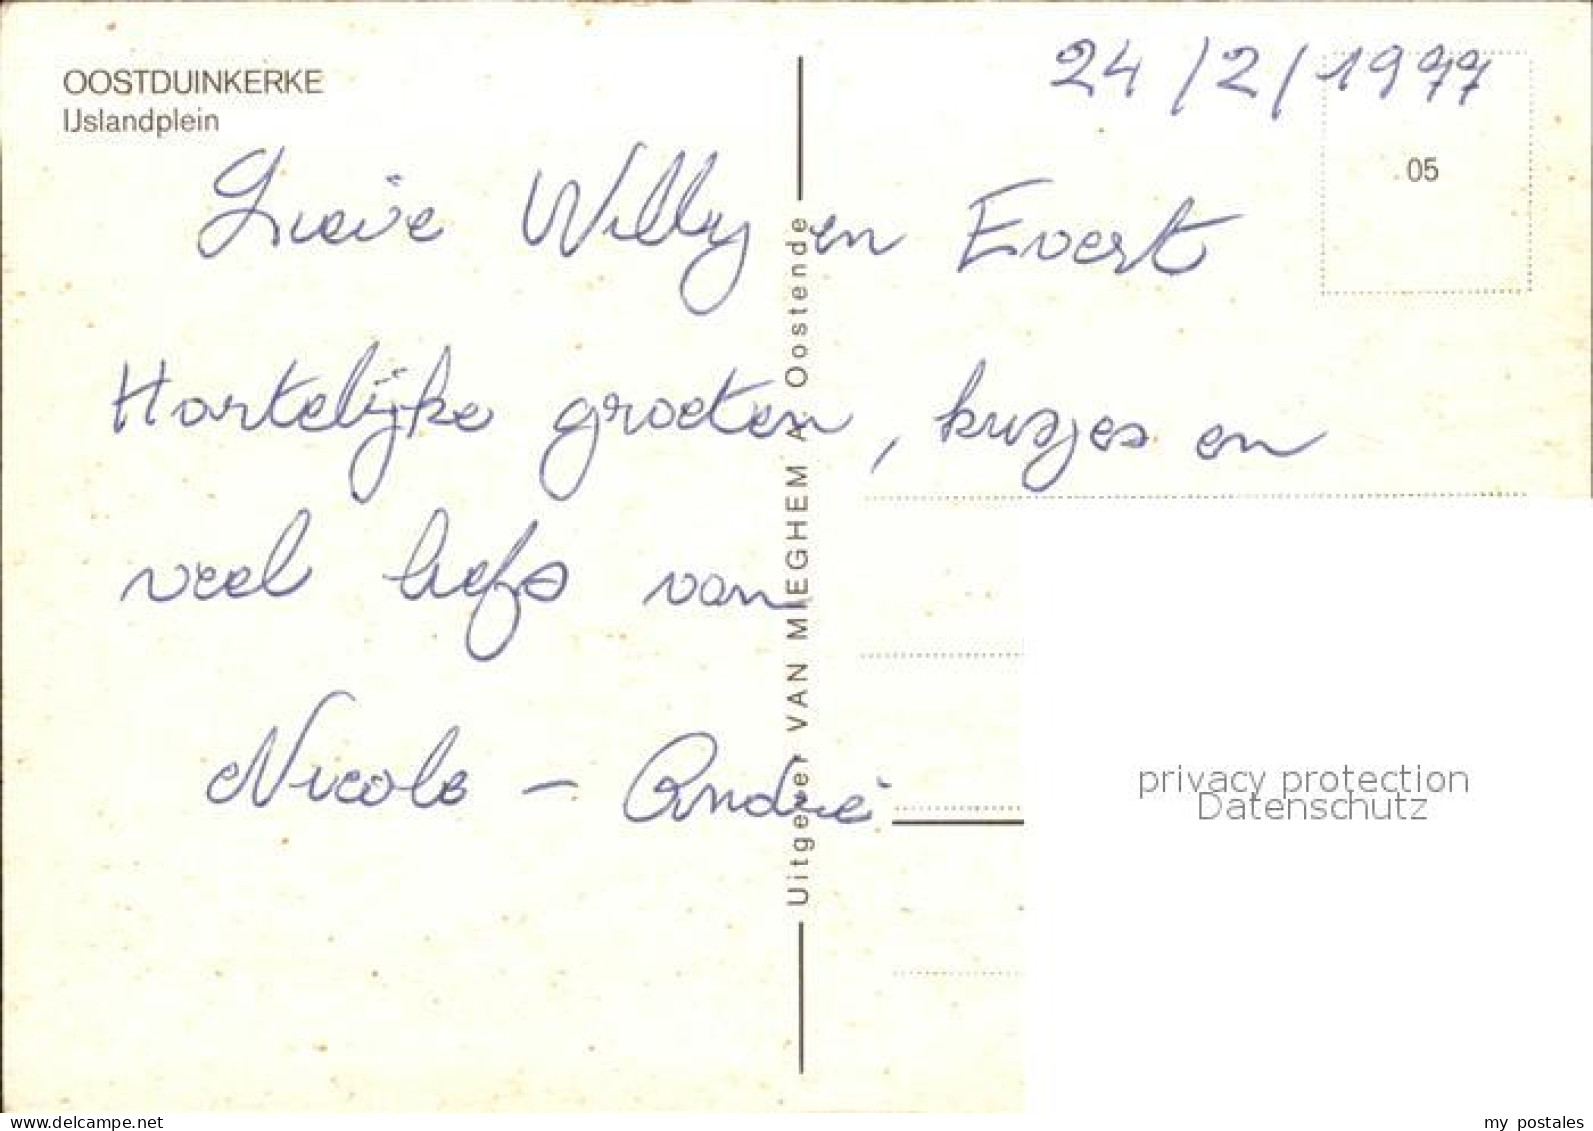 OOSTDUINKERKE
IJslandplein
24/2/1977
05
Lieve Willy en Evert
Hartelijke groeten, kusjes en
veel liefs van
Nicole - André
Uitgever VAN MIEGHEM A. Oostende
privacy protection
Datenschutz
www.delcampe.net
my_postales